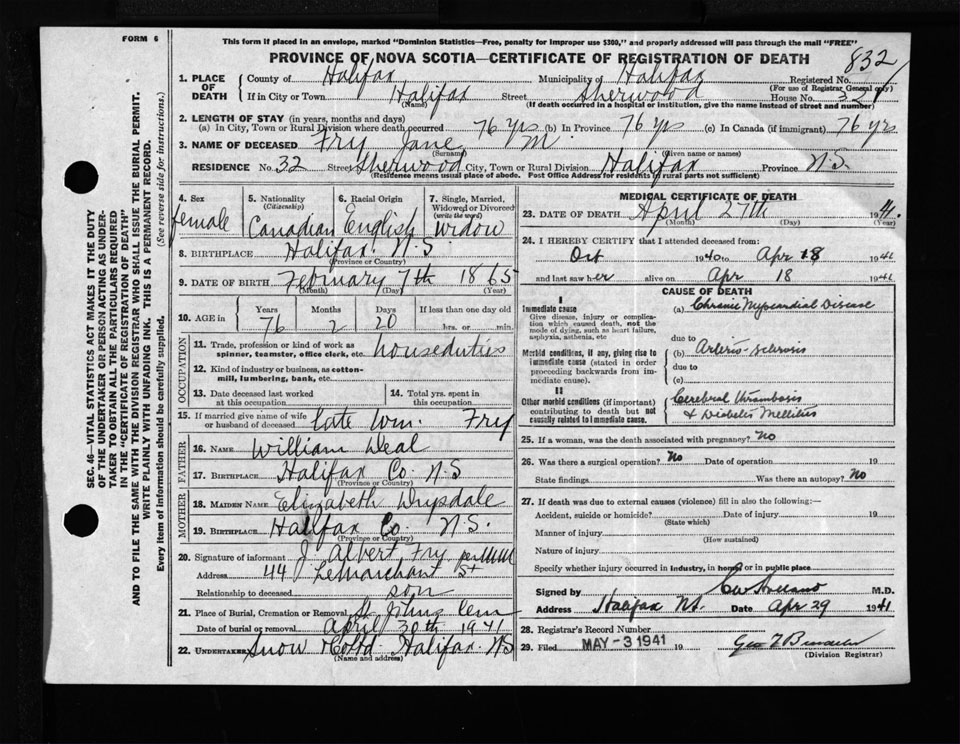 FORM 6
This form if placed in an envelope, marked "Dominion Statistics—Free, penalty for improper use $300," and properly addressed will pass through the mail "FREE"
PROVINCE OF NOVA SCOTIA—CERTIFICATE OF REGISTRATION OF DEATH
832
1. PLACE OF DEATH County of Halifax Municipality of Halifax Registered No.
(For use of Registrar General only)
If in City or Town Halifax Street Sherwood House No. 32
(Name) (If death occurred in a hospital or institution, give the name instead of street and number)
2. LENGTH OF STAY (in years, months and days)
(a) In City, Town or Rural Division where death occurred 76 yrs (b) In Province 76 yrs (c) In Canada (if immigrant) 76 yrs
3. NAME OF DECEASED Fry Jane M.
(Surname) (Given name or names)
RESIDENCE No. 32 Street Sherwood City, Town or Rural Division Halifax Province N.S.
(Residence means usual place of abode. Post Office Address for residents in rural parts not sufficient)
4. Sex female
5. Nationality (Citizenship) Canadian
6. Racial Origin English
7. Single, Married, Widowed or Divorced (write the word) Widow
8. BIRTHPLACE Halifax N.S.
(Province or Country)
9. DATE OF BIRTH February 7th 1865
(Month) (Day) (Year)
10. AGE in Years 76 Months 2 Days 20 If less than one day old hrs. or min.
OCCUPATION
11. Trade, profession or kind of work as spinner, teamster, office clerk, etc. houseduties
12. Kind of industry or business, as cotton-mill, lumbering, bank, etc.
13. Date deceased last worked at this occupation
14. Total yrs. spent in this occupation
15. If married give name of wife or husband of deceased late Wm. Fry
FATHER
16. NAME William Deal
17. BIRTHPLACE Halifax Co. N.S
(Province or Country)
MOTHER
18. MAIDEN NAME Elizabeth Drysdale
19. BIRTHPLACE Halifax Co. N.S.
(Province or Country)
20. Signature of informant J. Albert Fry per MM
Address 44 LeMarchant St
Relationship to deceased son
21. Place of Burial, Cremation or Removal St. Johns Cem
Date of burial or removal April 30th 1941
22. UNDERTAKER Snow & Co Ltd. Halifax. N.S
(Name and address)
MEDICAL CERTIFICATE OF DEATH
23. DATE OF DEATH April 27th 1941.
(Month) (Day) (Year)
24. I HEREBY CERTIFY that I attended deceased from:
Oct 1940 to Apr 18 1941
and last saw her alive on Apr 18 1941
CAUSE OF DEATH
I
Immediate cause
Give disease, injury or complication which caused death, not the mode of dying, such as heart failure, asphyxia, asthenia, etc
(a) Chronic Myocardial Disease
due to
Morbid conditions, if any, giving rise to immediate cause (stated in order proceeding backwards from immediate cause).
(b) Arterio-sclerosis
due to
(c)
II
Other morbid conditions (if important) contributing to death but not causally related to immediate cause.
Cerebral thrombosis
& Diabetes Mellitus
25. If a woman, was the death associated with pregnancy? No
26. Was there a surgical operation? No Date of operation 19
State findings Was there an autopsy? No
27. If death was due to external causes (violence) fill in also the following:—
Accident, suicide or homicide? Date of injury 19
(State which)
Manner of injury
(How sustained)
Nature of injury
Specify whether injury occurred in industry, in home or in public place
Signed by M.D.
Address Halifax NS. Date Apr 29 1941
28. Registrar's Record Number
29. Filed MAY -3 1941 19
(Division Registrar)
SEC. 46—VITAL STATISTICS ACT MAKES IT THE DUTY
OF THE UNDERTAKER OR PERSON ACTING AS UNDER-
TAKER TO OBTAIN ALL THE PARTICULARS REQUIRED
IN THE "CERTIFICATE OF REGISTRATION OF DEATH"
AND TO FILE THE SAME WITH THE DIVISION REGISTRAR WHO SHALL ISSUE THE BURIAL PERMIT.
WRITE PLAINLY WITH UNFADING INK. THIS IS A PERMANENT RECORD.
Every item of information should be carefully supplied. (See reverse side for instructions.)